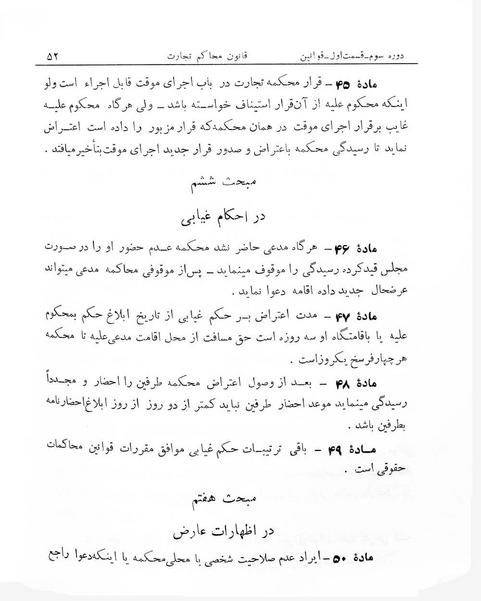 دوره سوم_قسمت‌اول_قوانین قانون محاکم تجارت ۵۲
مادۀ ۴۵ - قرار محکمه تجارت در باب اجرای موقت قابل اجراء است ولو
اینکه محکوم علیه از آن‌قرار استیناف خواسته باشد _ ولی هرگاه محکوم علیه
غایب برقرار اجرای موقت در همان محکمه‌که قرار مزبور را داده است اعتراض
نماید تا رسیدگی محکمه باعتراض و صدور قرار جدید اجرای موقت‌بتأخیرمیافتد .
مبحث ششم
در احکام غیابی
مادۀ ۴۶ - هرگاه مدعی حاضر نشد محکمه عدم حضور او را در صورت
مجلس قیدکرده رسیدگی را موقوف مینماید _ پس‌از موقوفی محاکمه مدعی میتواند
عرضحال جدید داده اقامه دعوا نماید .
مادۀ ۴۷ - مدت اعتراض بر حکم غیابی از تاریخ ابلاغ حکم بمحکوم
علیه یا باقامتگاه او سه روزه است حق مسافت از محل اقامت مدعی‌علیه تا محکمه
هرچهارفرسخ یکروزاست .
مادۀ ۴۸ - بعد از وصول اعتراض محکمه طرفین را احضار و مجدداً
رسیدگی مینماید موعد احضار طرفین نباید کمتر از دو روز از روز ابلاغ‌احضارنامه
بطرفین باشد .
مادۀ ۴۹ - باقی ترتیبات حکم غیابی موافق مقررات قوانین محاکمات
حقوقی است .
مبحث هفتم
در اظهارات عارض
مادۀ ۵۰ - ایراد عدم صلاحیت شخصی یا محلی‌محکمه یا اینکه‌دعوا راجع